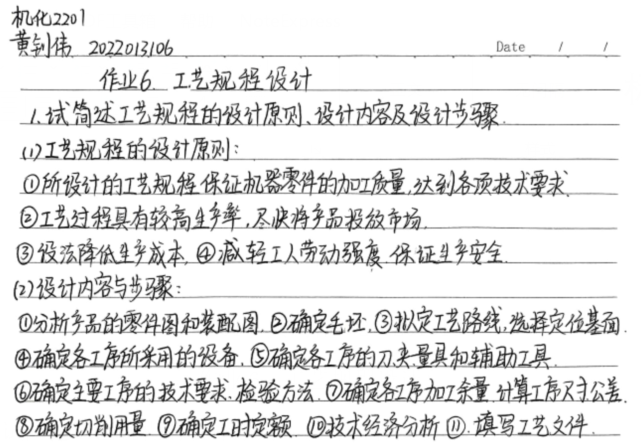 机化2201
黄钊伟 2022013106
Date / /
作业6. 工艺规程设计
1.试简述工艺规程的设计原则、设计内容及设计步骤.
(1)工艺规程的设计原则:
①所设计的工艺规程保证机器零件的加工质量,达到各项技术要求.
②工艺过程具有较高生产率,尽快将产品投放市场.
③设法降低生产成本, ④减轻工人劳动强度,保证生产安全.
(2)设计内容与步骤:
①分析产品的零件图和装配图.②确定毛坯.③拟定工艺路线,选择定位基面.
④确定各工序所采用的设备.⑤确定各工序的刀.夹.量具和辅助工具.
⑥确定主要工序的技术要求.检验方法.⑦确定各工序加工余量,计算工序尺寸公差.
⑧确定切削用量 ⑨确定工时定额. ⑩技术经济分析 ⑪.填写工艺文件.